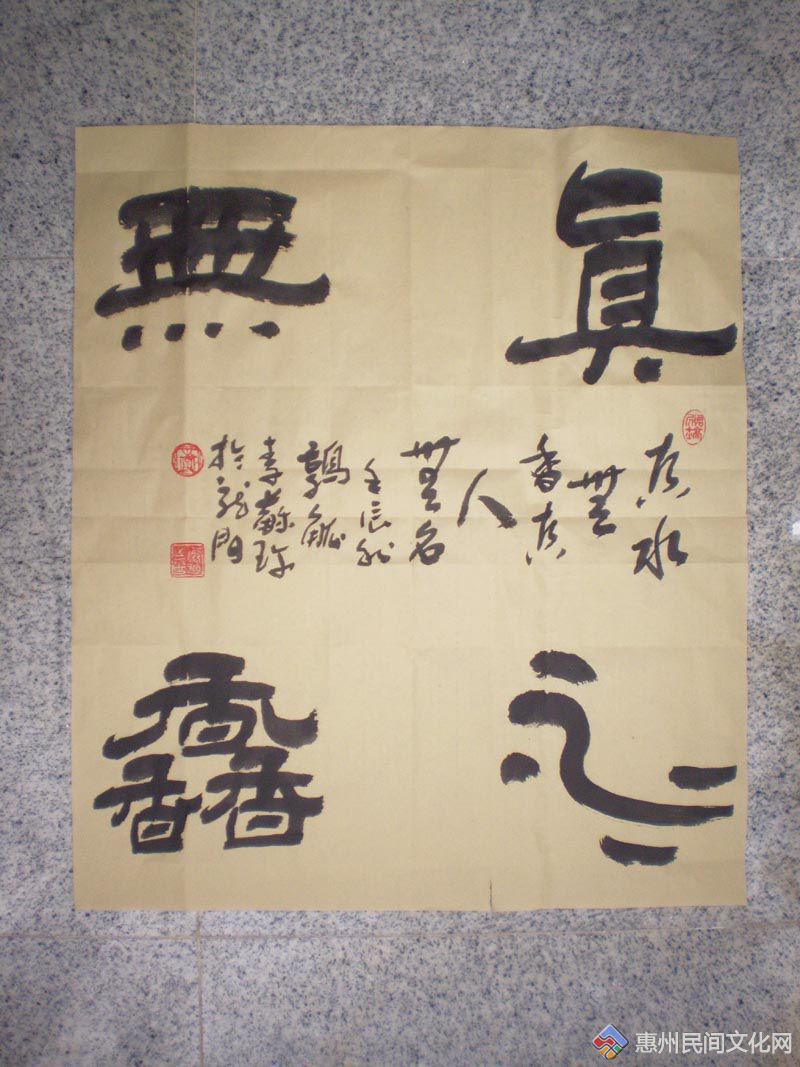 眞水
無馫
真水
無
香真
人
無名
壬辰秋
鶉觚
李
於龍門
惠州民间文化网